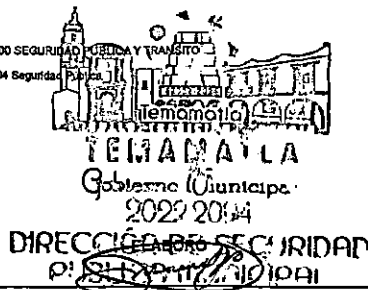 00 SEGURIDAD PÚBLICA Y TRANSITO
04 Seguridad Pública
Temamatla
TEMAMATLA
Gobierno Municipal
2022 2024
DIRECCIÓN DE SEGURIDAD
ELABORO
PUBLICA MUNICIPAL